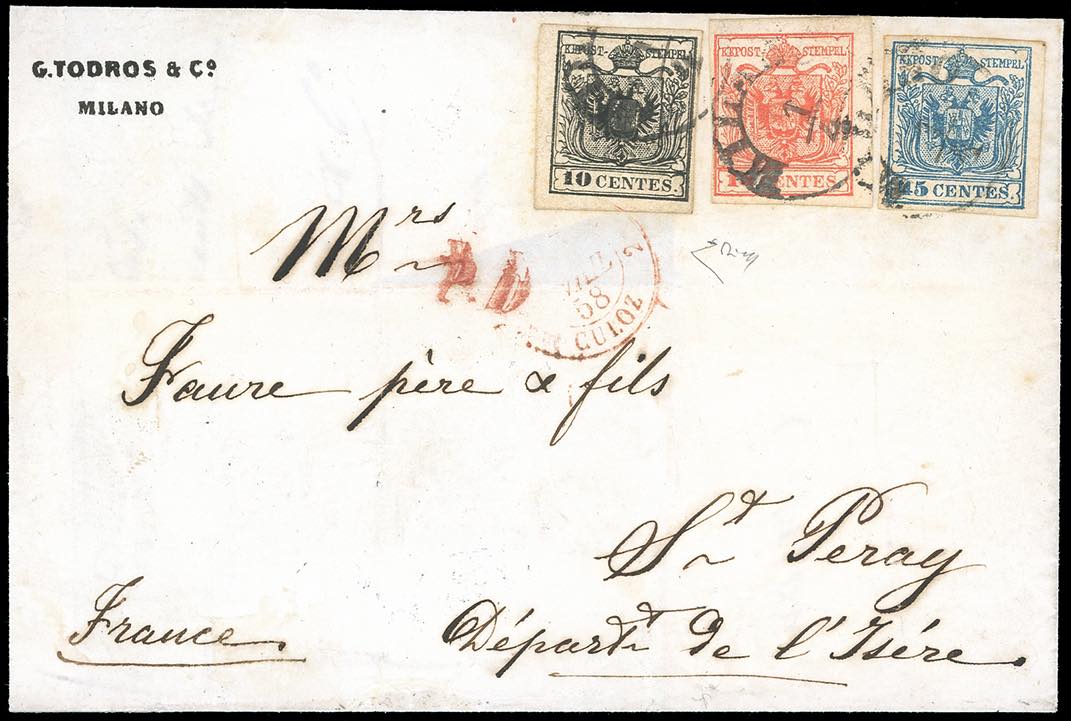 G. TODROS & Cº
MILANO
KKPOST- STEMPEL
10 CENTES.
KKPOST- STEMPEL
CENTES.
KKPOST- STEMPEL
45 CENTES.
MILANO
Mrs
P.D
58
2
CULOZ
Faure père & fils
St Peray
Départt de l'Isére.
France.